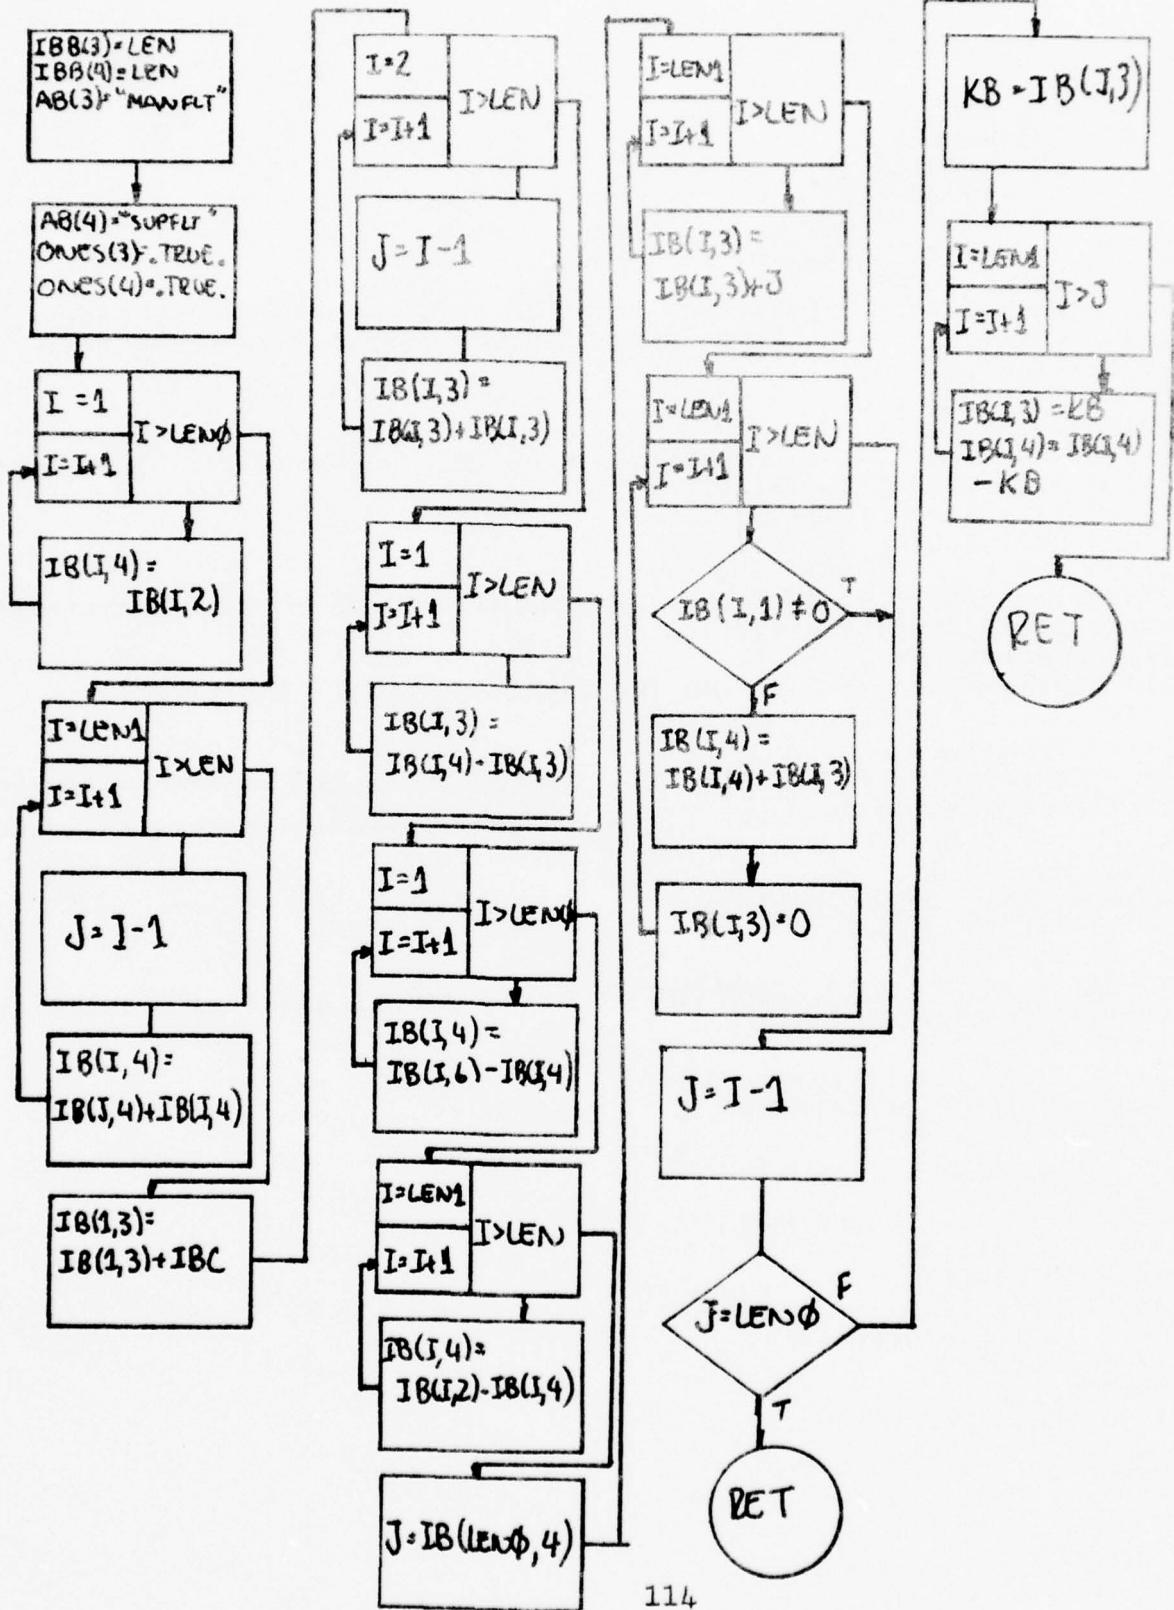 IBB(3)=LEN
IBB(4)=LEN
AB(3)="MANFLT"
AB(4)="SUPFLT"
ONES(3)=.TRUE.
ONES(4)=.TRUE.
I=1
I=I+1
I>LENØ
IB(I,4)=
IB(I,2)
I=LEN1
I=I+1
I>LEN
J=I-1
IB(I,4)=
IB(J,4)+IB(I,4)
IB(1,3)=
IB(1,3)+IBC
I=2
I=I+1
I>LEN
J=I-1
IB(I,3)=
IB(J,3)+IB(I,3)
I=1
I=I+1
I>LEN
IB(I,3)=
IB(I,4)-IB(I,3)
I=1
I=I+1
I>LENØ
IB(I,4)=
IB(I,6)-IB(I,4)
I=LEN1
I=I+1
I>LEN
IB(I,4)=
IB(I,2)-IB(I,4)
J=IB(LENØ,4)
I=LEN1
I=I+1
I>LEN
IB(I,3)=
IB(I,3)+J
I=LEN1
I=I+1
I>LEN
IB(I,1)≠0
T
F
IB(I,4)=
IB(I,4)+IB(I,3)
IB(I,3)=0
J=I-1
J=LENØ
F
T
RET
KB=IB(J,3)
I=LEN1
I=I+1
I>J
IB(I,3)=KB
IB(I,4)=IB(I,4)
-KB
RET
114